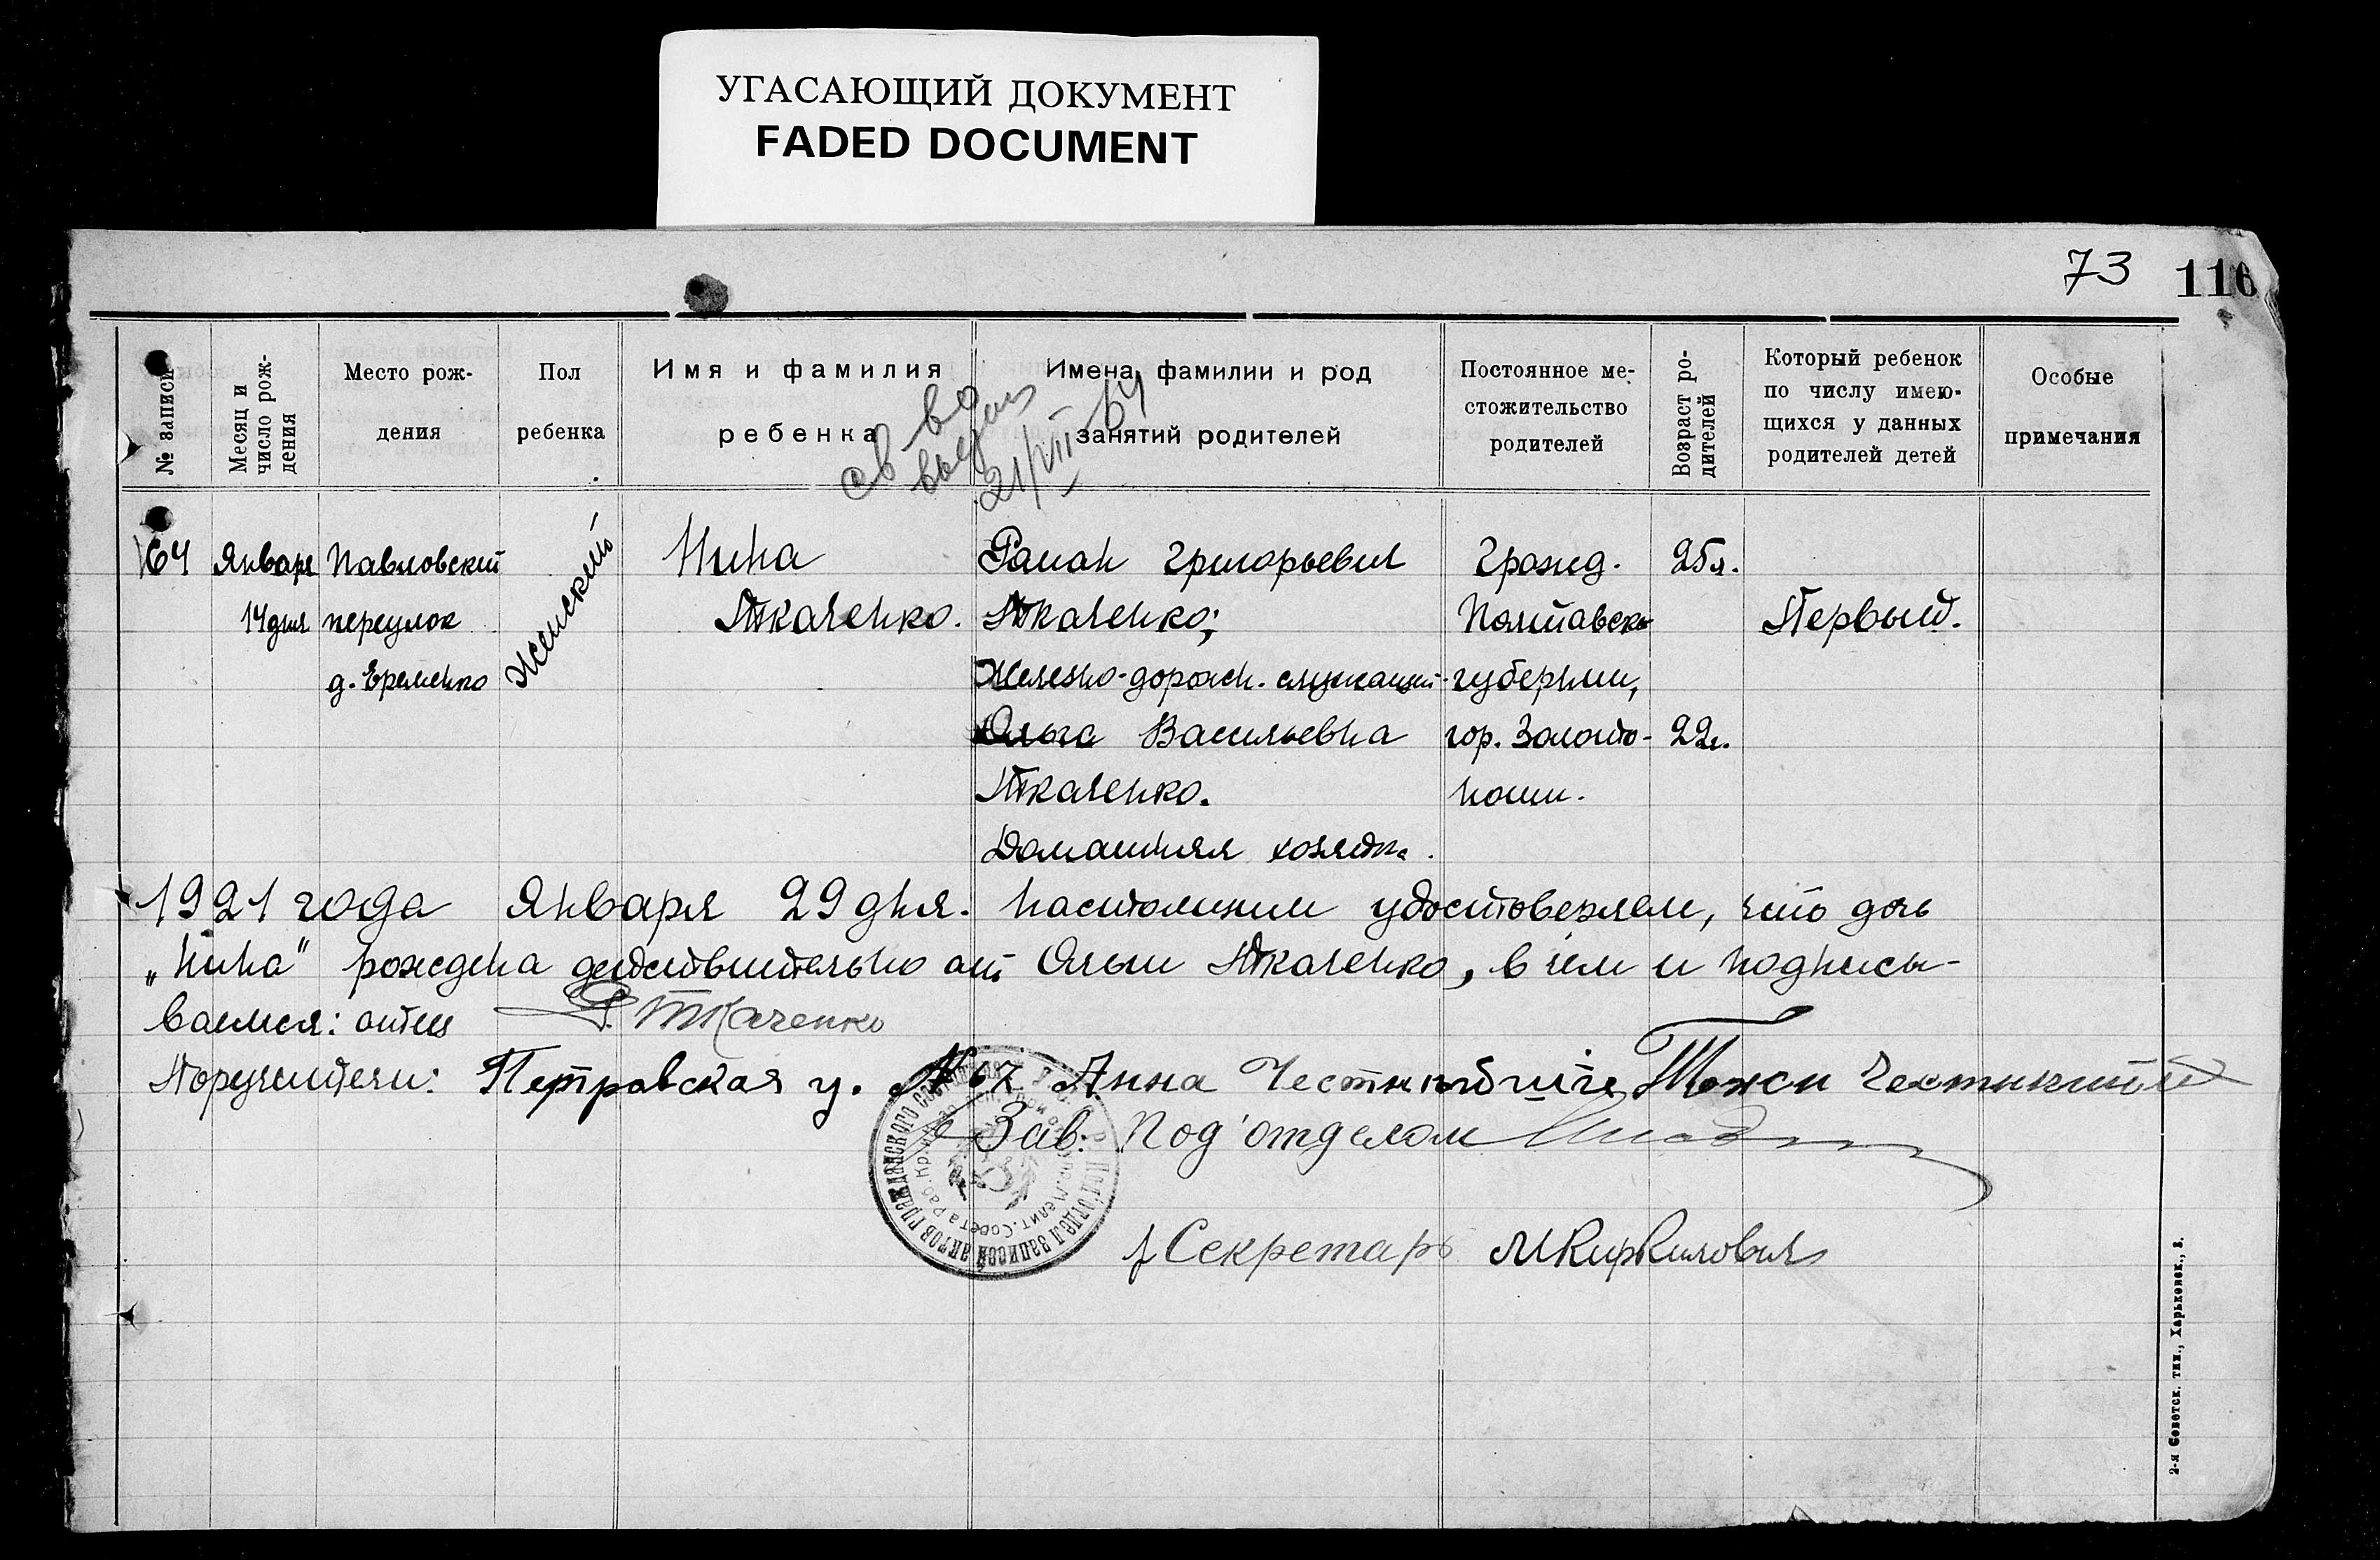 УГАСАЮЩИЙ ДОКУМЕНТ
FADED DOCUMENT
73 116
№ записи
Месяц и
число рож-
дения
Место рож-
дения
Пол
ребенка
Имя и фамилия
ребенка
Имена, фамилии и род
занятий родителей
Постоянное ме-
стожительство
родителей
Возраст ро-
дителей
Который ребенок
по числу имею-
щихся у данных
родителей детей
Особые
примечания
св-во
выдан
21/VIII-64
64
Января
14 дня
Павловский
переулок
д. Еременко
Женский
Нина
Ткаченко.
Роман Григорьевич
Ткаченко;
Железно-дорожн. служащий
Ольга Васильевна
Ткаченко.
Домашняя хозяйка.
Гражд.
Полтавско
губернии,
гор. Золото-
ноши.
25 л.
22 л.
Первый.
1921 года Января 29 дня. Настоящим удостоверяем, что дочь
„Нина" рождена действительно от Ольги Ткаченко, в чем и подписы-
ваемся: отец Р. Ткаченко
Поручители: Петровская у. № 67 Анна
Зав. Под'отделом
Секретарь М Киркилович
Под'отдел записей актов гражданского состояния
2-я Советск. тип., Харьковск., 3.